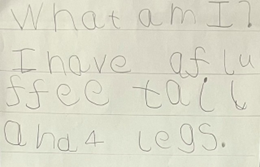 What am I?
I have a flu
ffee tail
and 4 legs.